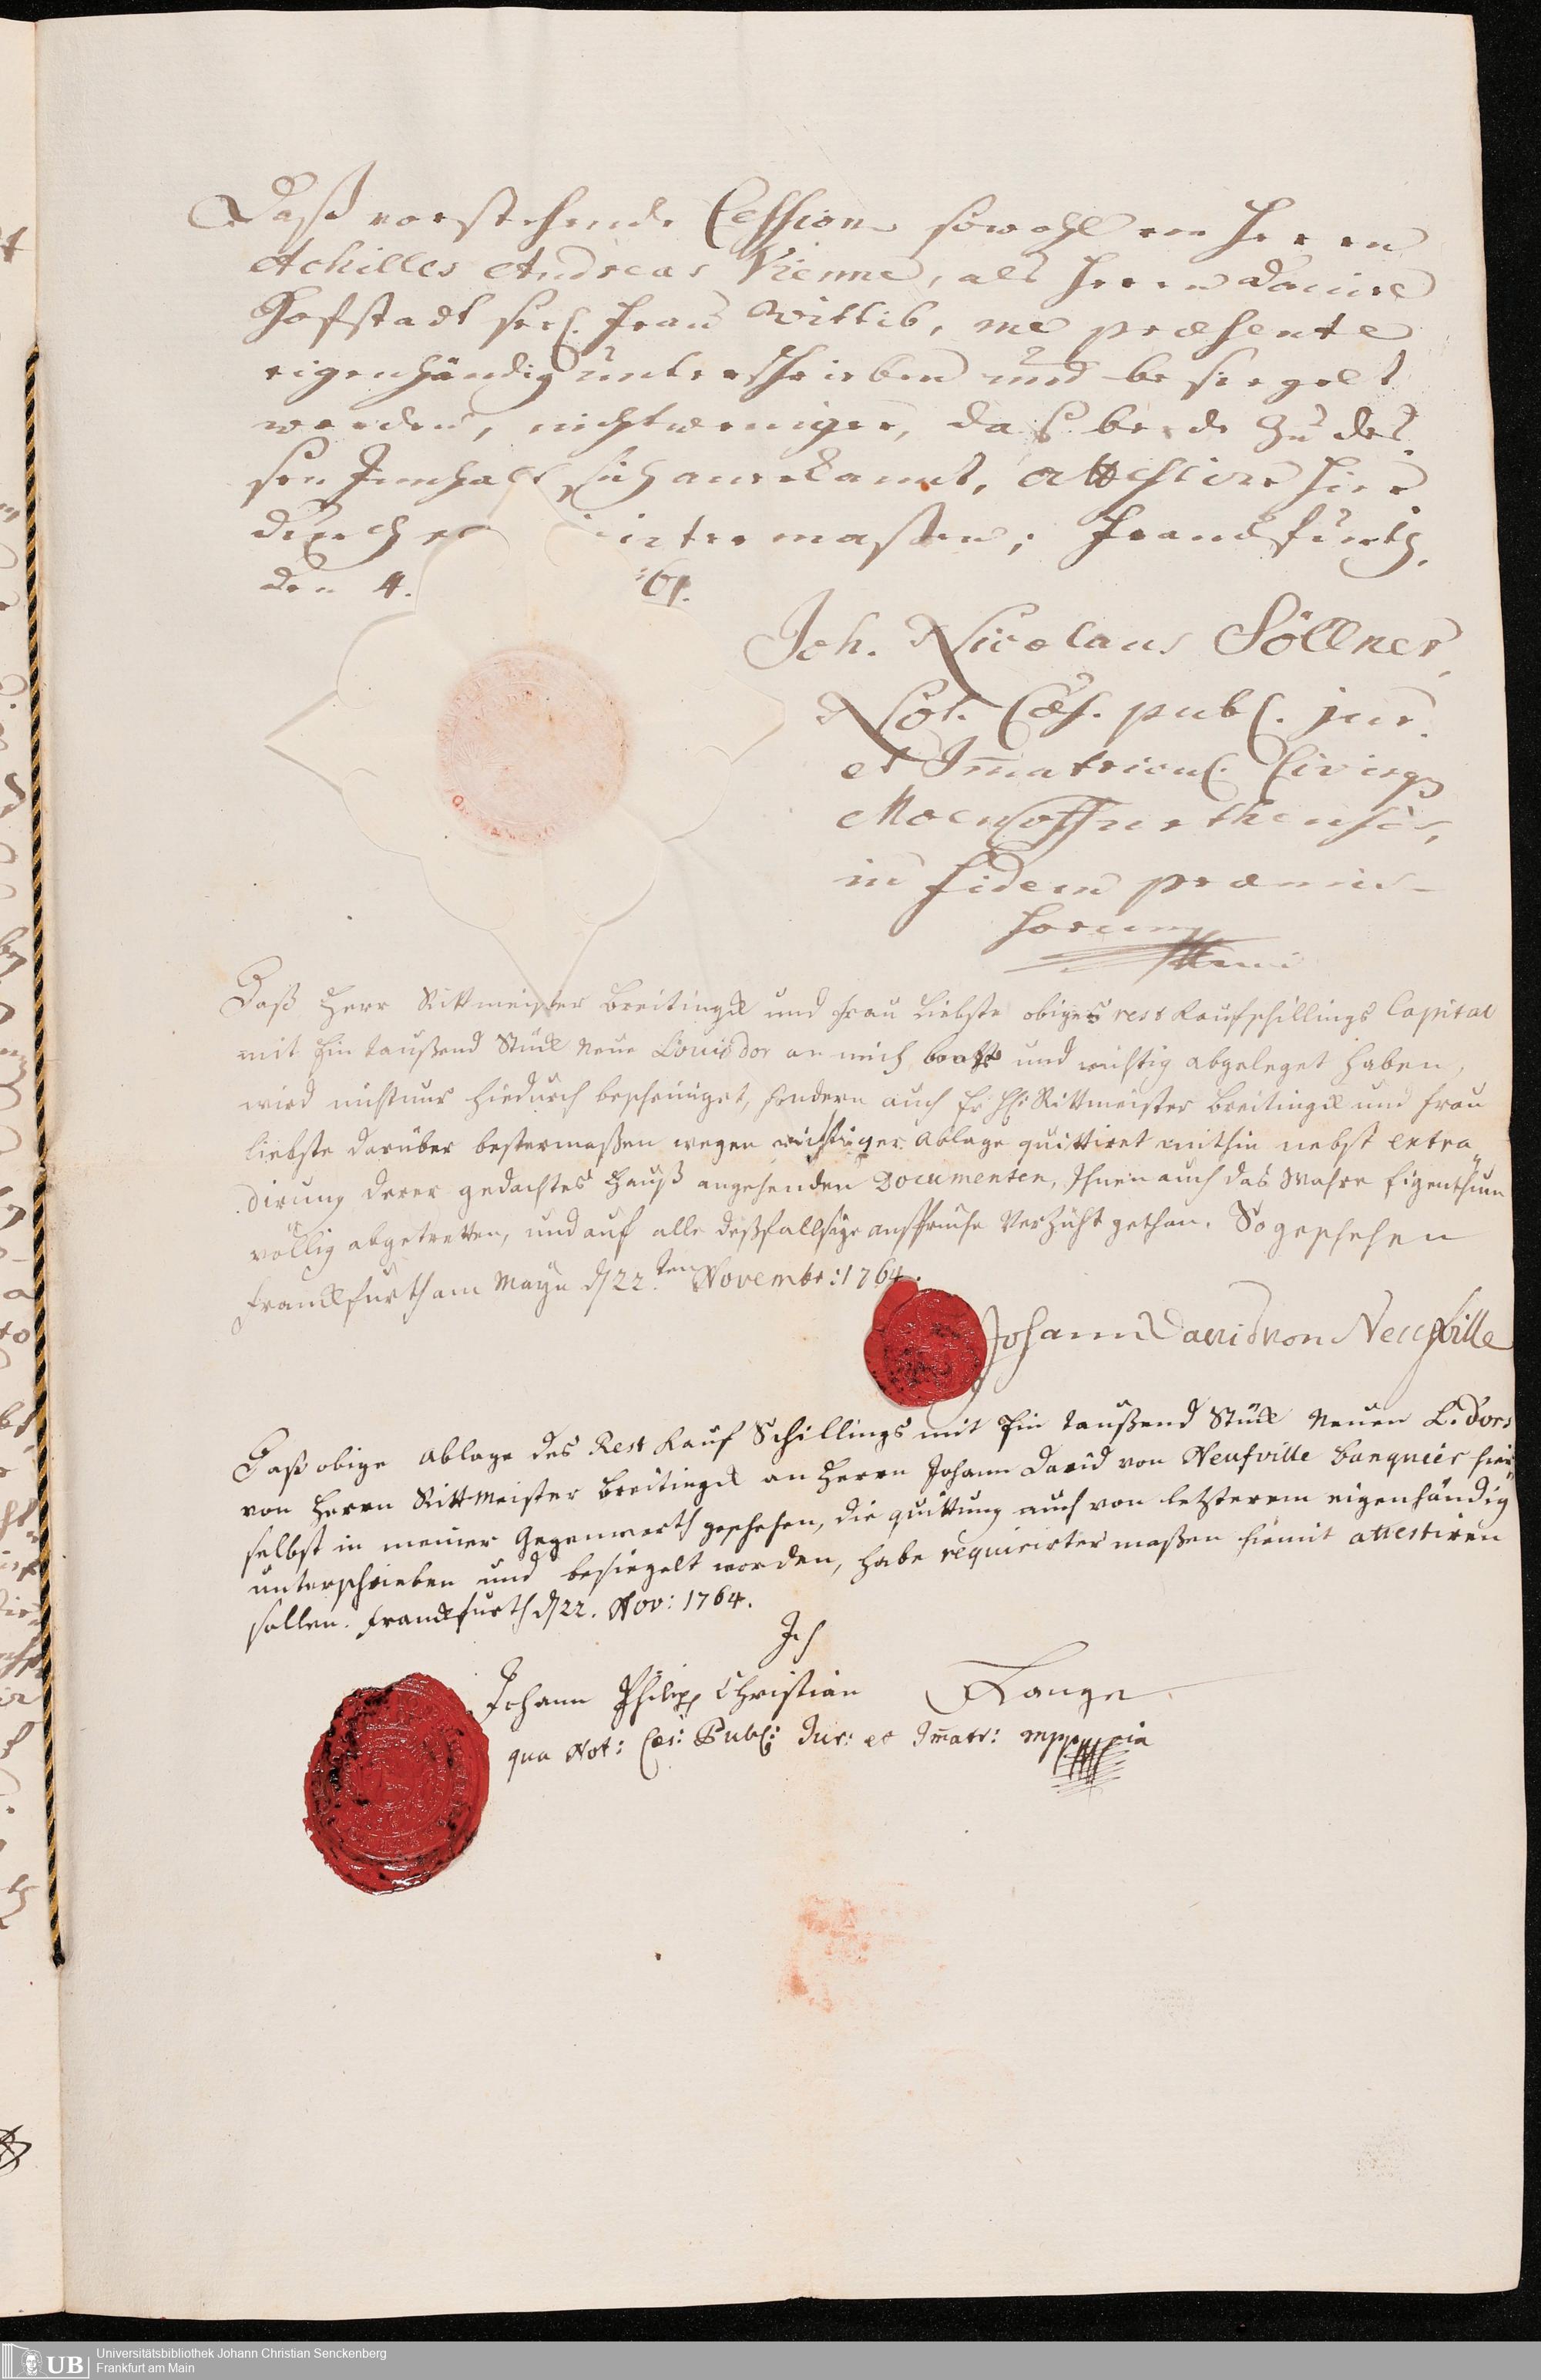 Daß vorstehende Cession sowohl von Herrn
Achilles Andreas Vienne, als Herrn Daniel
Hofstadt seel. Frau Wittib, me præsente
eigenhändig unterschrieben und besiegelt
worden, nicht weniger, daß beede zu des-
sen Innhalt sich anerkannt, attestire hier
durch maßen; Franckfurth,
den 4. 61.
Joh. Nicolaus Söllner,
Not. Cæs. publ. jur.
et Im̄atricul. Civisq
Moenoffurthensis,
in fidem præmis-
sorum
Daß Herr Rittmeister Breitingk und Frau Liebste obiges rest Kaufschillings Capital
mit Ein taußend Stück Neue Louisdor an mich baar und richtig abgeleget haben,
wird nicht nur hiedurch bescheiniget, sondern auch Er Hr. Rittmeister Breitingk und Frau
Liebste darüber bestermaßen wegen richtiger Ablage quittiret mithin nebst extra„
dirung derer gedachtes Hauß angehenden Documenten, Ihnen auch das Wahre Eigenthum
völlig abgetretten, und auf alle deßfallsige anspruche Verzücht gethan. So geschehen
Franckfurth am Mayn d 22.ten Novembr: 1764.
Johann David von Neufville
Daß obige Ablage des Rest Kauf Schillings mit Ein taußend Stück Neuen L.dors
von Herrn Rittmeister Breitingk an Herrn Johann David von Neufville Banquier hier„
selbst in meiner Gegenwarth geschehen, die quittung auch von letzterem eigenhändig
unterschrieben und besiegelt worden, habe requirirter maßen hiemit attestiren
sollen. Franckfurth d 22. Nov: 1764.
Ich
Johann Philipp Christian Lange
qua Not: Cæs: Publ: Jur: et Im̄atr: mppria
UB
Universitätsbibliothek Johann Christian Senckenberg
Frankfurt am Main